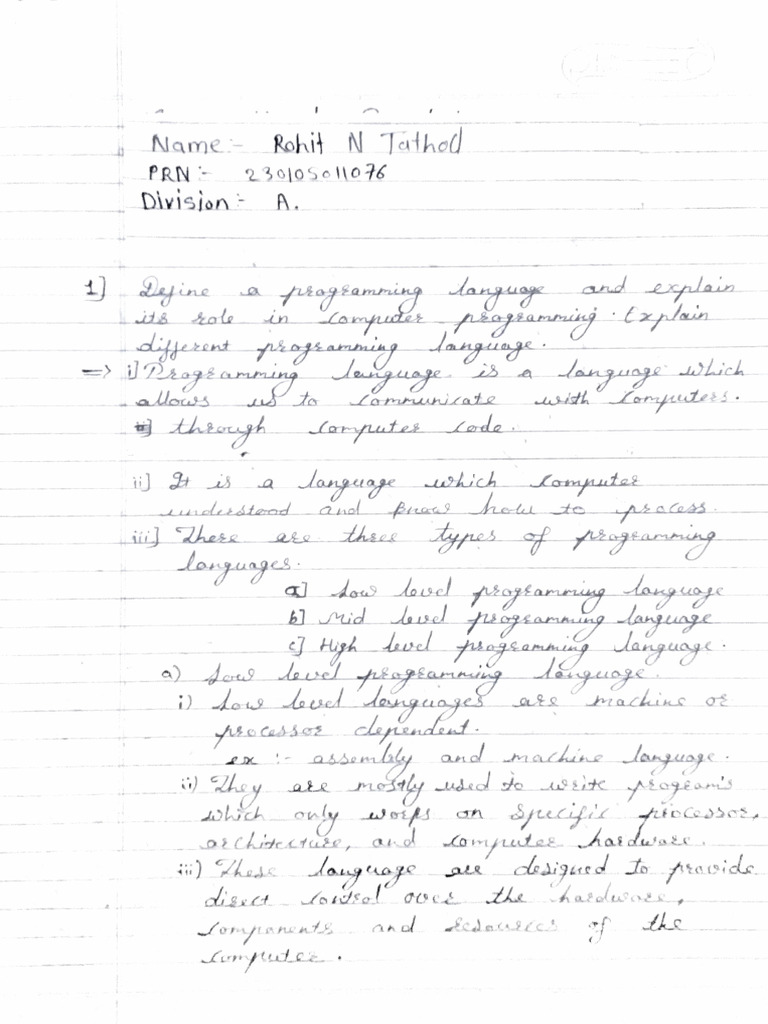 Name :- Rohit N Tathod
PRN :- 230105011076
Division :- A.
1] Define a programming language and explain
its role in computer programming. Explain
different programming language.
=> i] Programming language is a language which
allows us to communicate with computers.
through computer code.
ii] It is a language which computer
understood and know how to process.
iii] There are three types of programming
languages.
a] Low level programming language
b] Mid level programming language
c] High level programming language.
a) Low level programming language.
i) Low level languages are machine or
processor dependent.
ex :- assembly and machine language.
ii) They are mostly used to write program's
which only works on specific processor,
architecture, and computer hardware.
iii) These language are designed to provide
direct control over the hardware,
components and resources of the
computer.